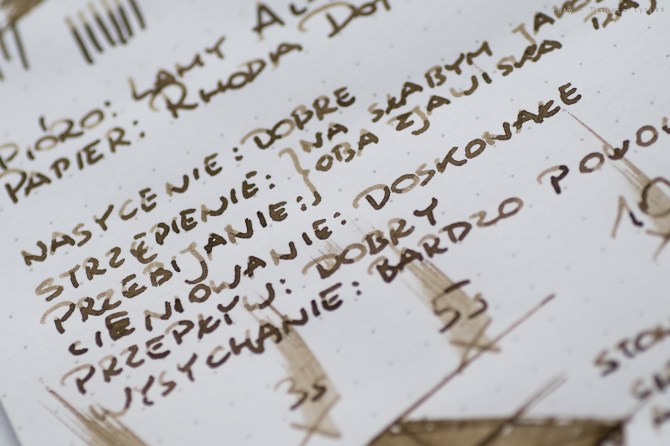 PIÓRO: LAMY AL
PAPIER: RHODIA DOT
NASYCENIE: DOBRE
STRZĘPIENIE: } NA SŁABYM
PRZEBIJANIE: } OBA ZJAWISKA
CIENIOWANIE: DOSKONAŁE
PRZEPŁYW: DOBRY
WYSYCHANIE: BARDZO POWOL
3s
5s